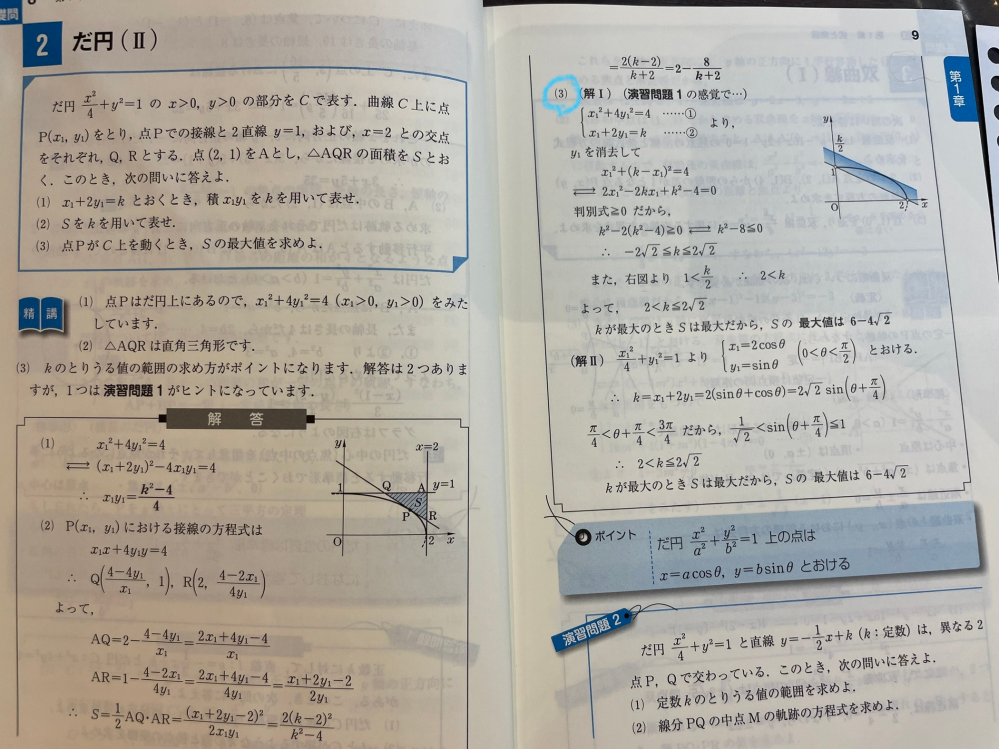 礎問
2 だ円(Ⅱ)
だ円 x²/4+y²=1 の x>0, y>0 の部分を C で表す. 曲線 C 上に点
P(x₁, y₁) をとり, 点 P での接線と 2 直線 y=1, および, x=2 との交点
をそれぞれ, Q, R とする. 点(2, 1)を A とし, △AQR の面積を S とお
く. このとき, 次の問いに答えよ.
(1) x₁+2y₁=k とおくとき, 積 x₁y₁ を k を用いて表せ.
(2) S を k を用いて表せ.
(3) 点 P が C 上を動くとき, S の最大値を求めよ.
精講
(1) 点 P はだ円上にあるので, x₁²+4y₁²=4 (x₁>0, y₁>0) をみた
しています.
(2) △AQR は直角三角形です.
(3) k のとりうる値の範囲の求め方がポイントになります. 解答は 2 つありま
すが, 1 つは演習問題 1 がヒントになっています.
解 答
(1) x₁²+4y₁²=4
⟺ (x₁+2y₁)²−4x₁y₁=4
∴ x₁y₁=(k²−4)/4
(2) P(x₁, y₁) における接線の方程式は
x₁x+4y₁y=4
∴ Q((4−4y₁)/x₁, 1), R(2, (4−2x₁)/4y₁)
よって,
AQ=2−(4−4y₁)/x₁=(2x₁+4y₁−4)/x₁
AR=1−(4−2x₁)/4y₁=(2x₁+4y₁−4)/4y₁=(x₁+2y₁−2)/2y₁
∴ S=1/2 AQ・AR=(x₁+2y₁−2)²/2x₁y₁=2(k−2)²/(k²−4)
y
x=2
Q A y=1
1
S
P R
O 2 x
9
第1章
=2(k−2)/(k+2)=2−8/(k+2)
(3) (解Ⅰ) (演習問題 1 の感覚で…)
x₁²+4y₁²=4 ……①
x₁+2y₁=k ……② より,
y₁ を消去して
x₁²+(k−x₁)²=4
⟺ 2x₁²−2kx₁+k²−4=0
判別式≧0 だから,
k²−2(k²−4)≧0 ⟺ k²−8≦0
∴ −2√2≦k≦2√2
また, 右図より 1<k/2 ∴ 2<k
よって, 2<k≦2√2
k が最大のとき S は最大だから, S の 最大値は 6−4√2
y
k/2
1
O 2 x
(解Ⅱ) x₁²/4+y₁²=1 より {x₁=2cosθ, y₁=sinθ (0<θ<π/2) とおける.
∴ k=x₁+2y₁=2(sinθ+cosθ)=2√2 sin(θ+π/4)
π/4<θ+π/4<3π/4 だから, 1/√2<sin(θ+π/4)≦1
∴ 2<k≦2√2
k が最大のとき S は最大だから, S の 最大値は 6−4√2
ポイント
だ円 x²/a²+y²/b²=1 上の点は
x=acosθ, y=bsinθ とおける
演習問題 2
だ円 x²/4+y²=1 と直線 y=−1/2x+k (k:定数) は, 異なる 2
点 P, Q で交わっている. このとき, 次の問いに答えよ.
(1) 定数 k のとりうる値の範囲を求めよ.
(2) 線分 PQ の中点 M の軌跡の方程式を求めよ.